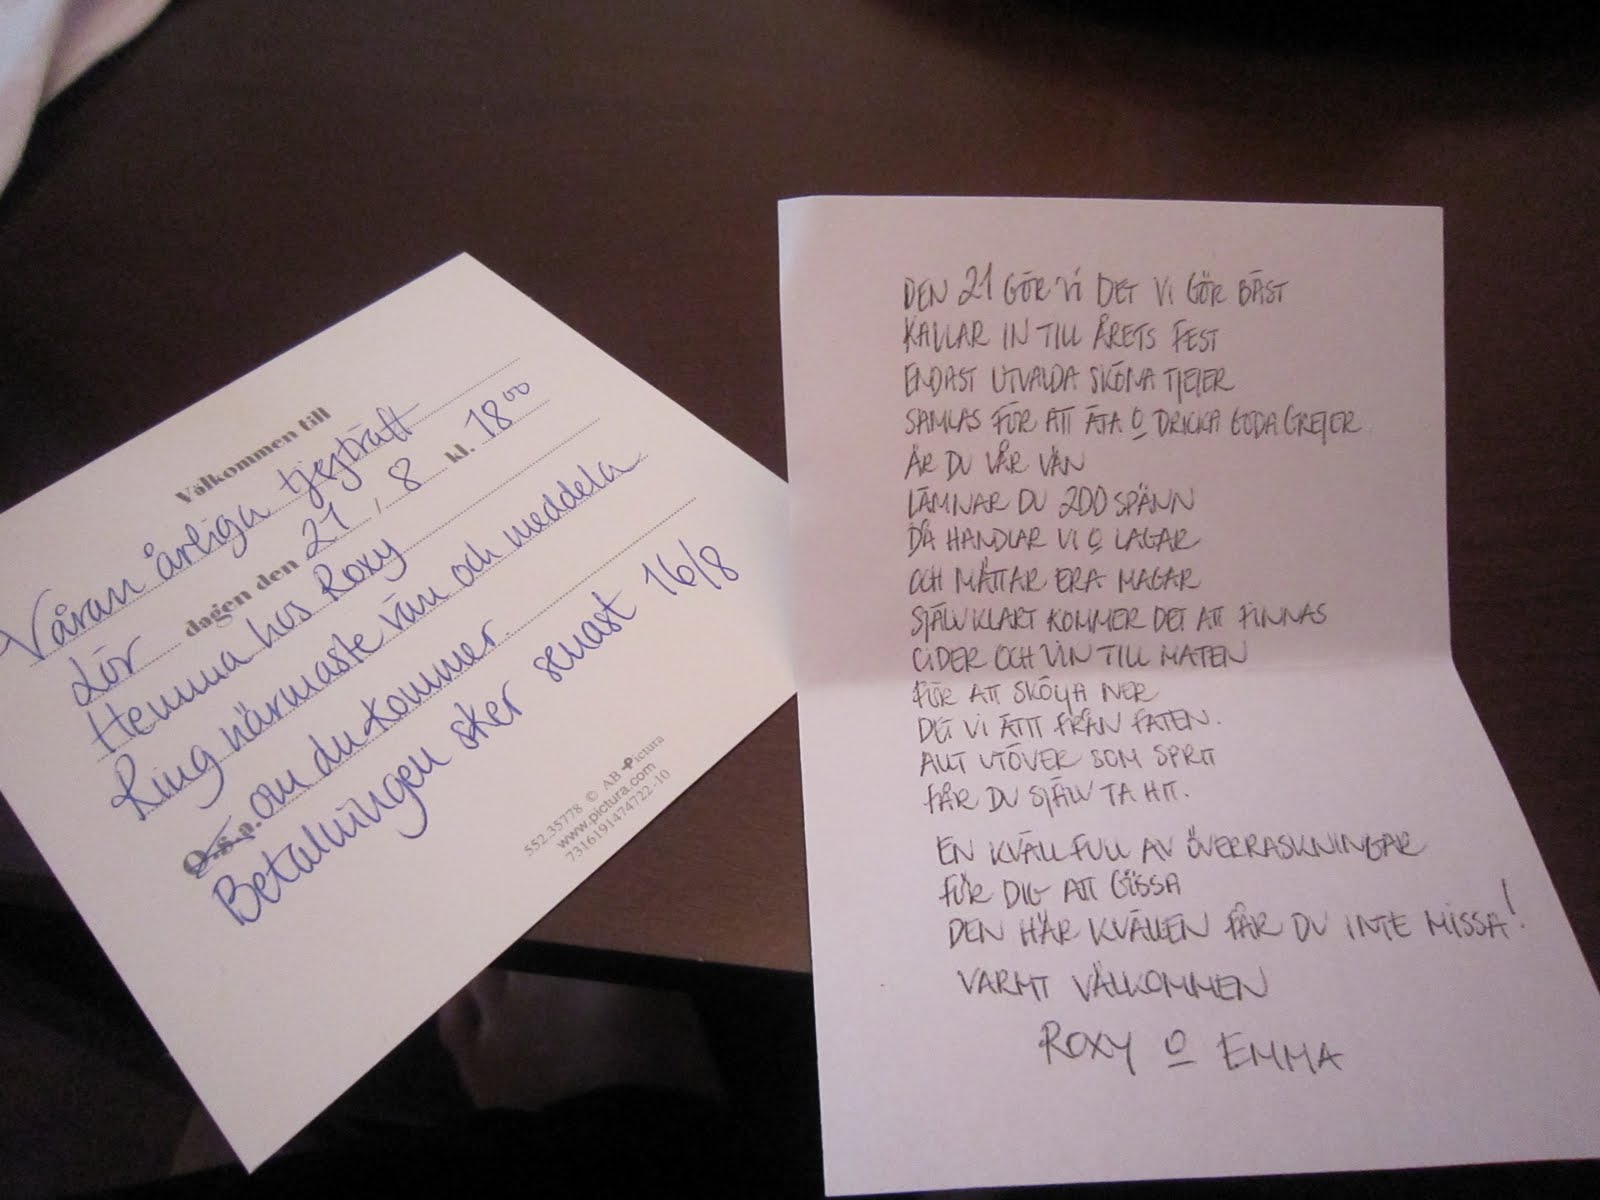 Välkommen till
Våran årliga tjejträff
Lör dagen den 21, 8 kl. 18⁰⁰
Hemma hos Roxy
Ring närmaste vän och meddela
O.s.a. om du kommer.
Betalningen sker senast 16/8
552.35778 © AB Pictura
www.pictura.com
7316191474722-10
DEN 21 GÖR VI DET VI GÖR BÄST
KALLAR IN TILL ÅRETS FEST
ENDAST UTVALDA SKÖNA TJEJER
SAMLAS FÖR ATT ÄTA O DRICKA GODA GREJER
ÄR DU VÅR VÄN
LÄMNAR DU 200 SPÄNN
DÅ HANDLAR VI O LAGAR
OCH MÄTTAR ERA MAGAR
SJÄLVKLART KOMMER DET ATT FINNAS
CIDER OCH VIN TILL MATEN
FÖR ATT SKÖLJA NER
DET VI ÄTIT FRÅN FATEN.
ALLT UTÖVER SOM SPRIT
FÅR DU SJÄLV TA HIT.
EN KVÄLL FULL AV ÖVERRASKNINGAR
FÖR DIG ATT GISSA
DEN HÄR KVÄLLEN FÅR DU INTE MISSA!
VARMT VÄLKOMMEN
ROXY O EMMA